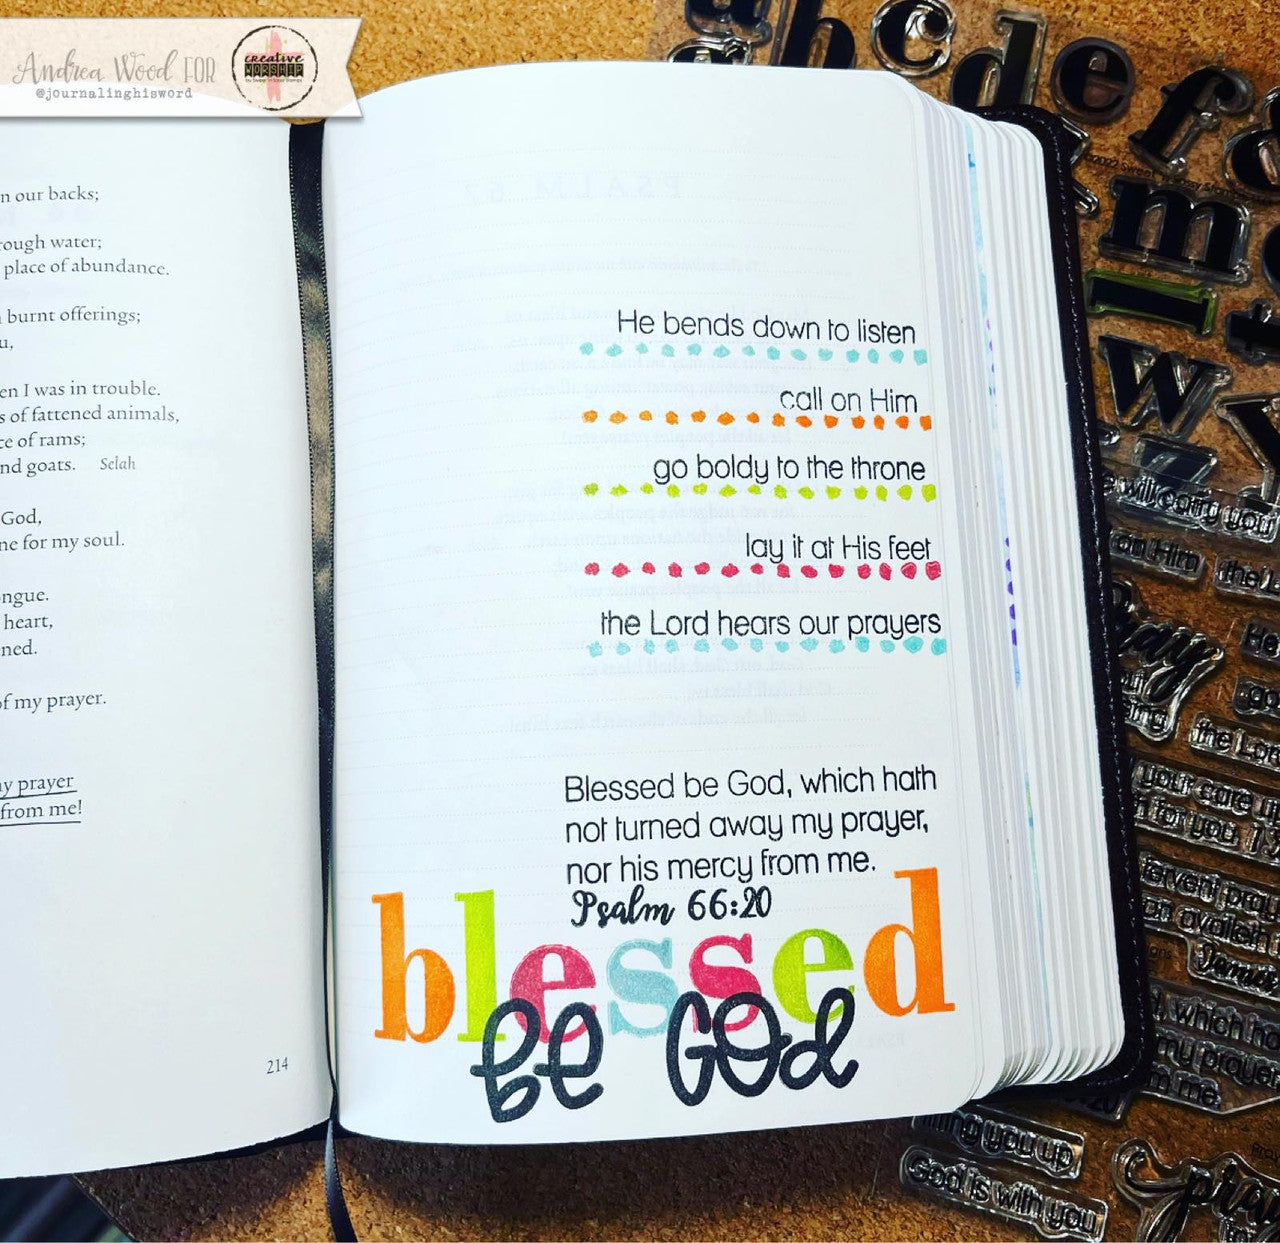 Andrea Wood FOR
@journalinghisword
creative
WORSHIP
n our backs;
rough water;
place of abundance.
burnt offerings;
u,
en I was in trouble.
s of fattened animals,
ce of rams;
nd goats. Selah
God,
ne for my soul.
ngue.
heart,
ned.
of my prayer.
y prayer
from me!
214
PSALM 67
He bends down to listen
call on Him
go boldy to the throne
lay it at His feet
the Lord hears our prayers
Blessed be God, which hath
not turned away my prayer,
nor his mercy from me.
Psalm 66:20
blessed
be God
a b c
d e f g
m
l
w t
y
z
will carry you
on Him
the L
He
go
the Lord
your care up
h for you. 1
fervent pray
on availeth
James
, which ha
my prayer
m me.
lifting you up
God is with you
pra